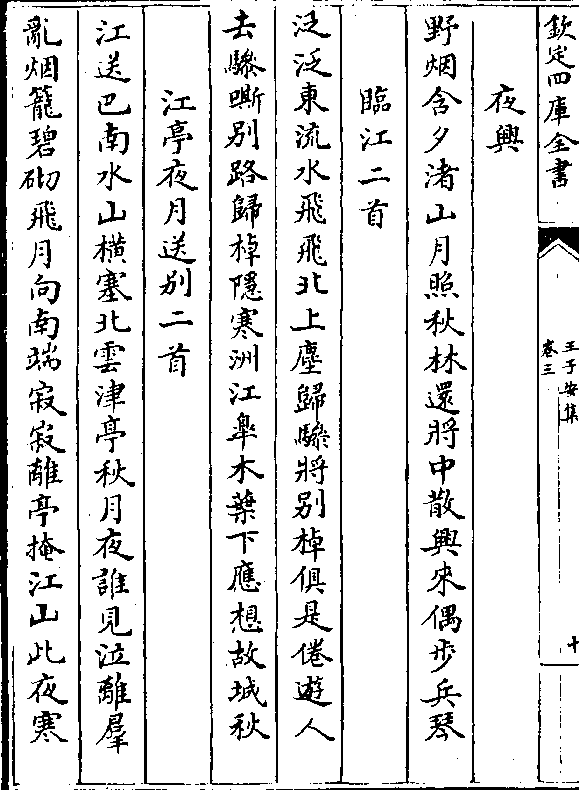 欽定四庫全書
王子安集
卷三
十
夜興
野烟含夕渚山月照秋林還將中散興來偶步兵琴
臨江二首
泛泛東流水飛飛北上塵歸驂將别棹俱是倦遊人
去驂嘶别路歸棹隱寒洲江臯木葉下應想故城秋
江亭夜月送别二首
江送巴南水山橫塞北雲津亭秋月夜誰見泣離羣
亂烟籠碧砌飛月向南端寂寂離亭掩江山此夜寒